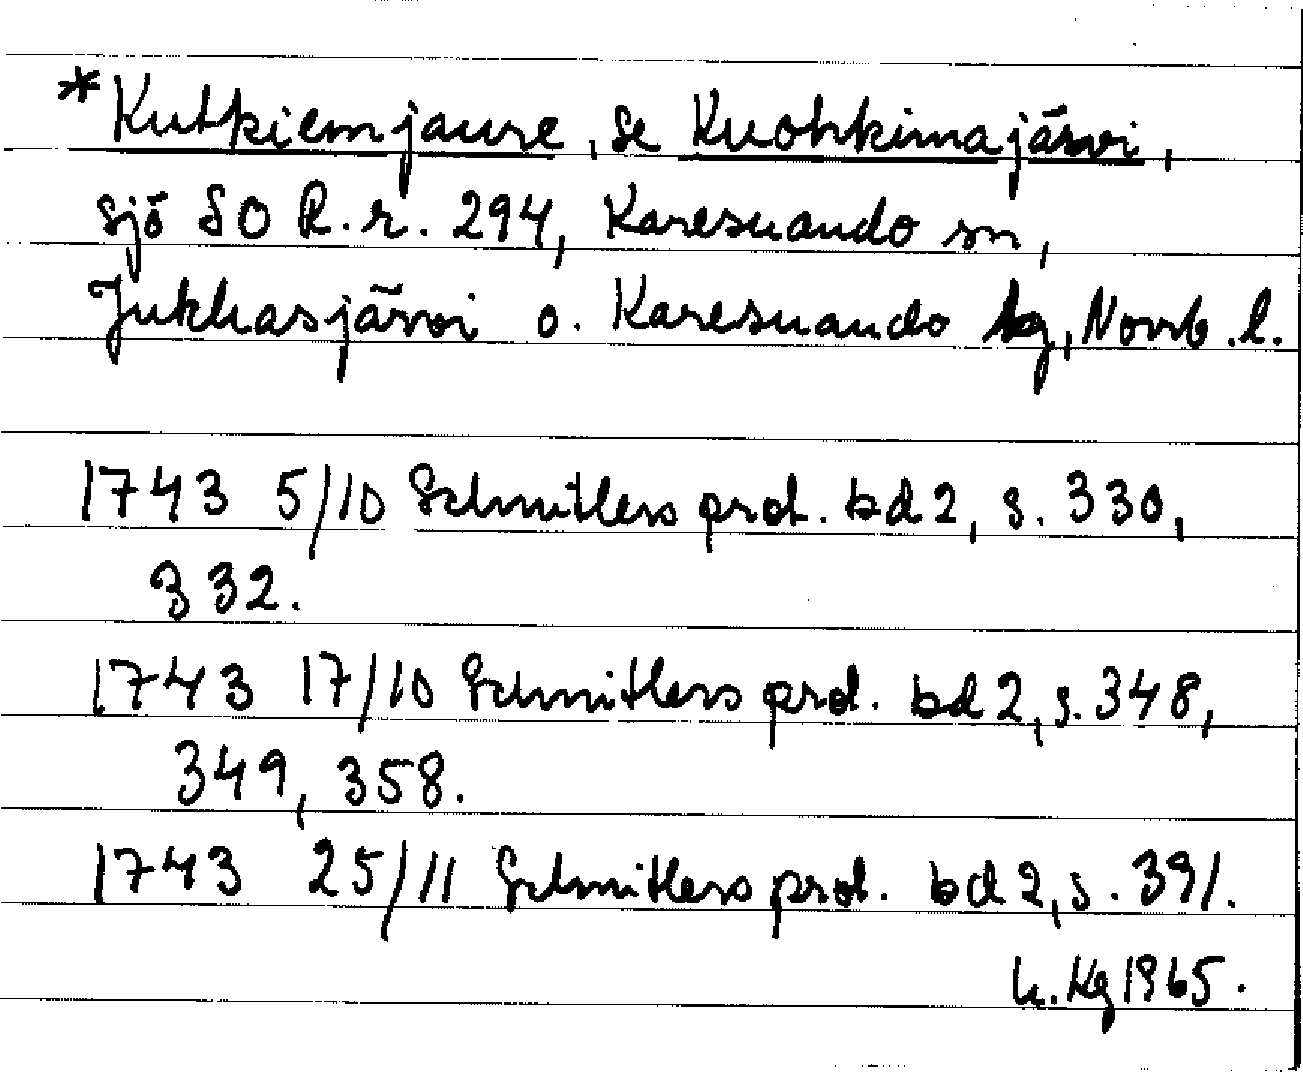 *Kutkiemjaure, se Kuohkimajärvi,
sjö SO R.r. 294, Karesuando sn,
Jukkasjärvi o. Karesuando tg, Norrb. l.
1743 5/10 Schnitlers prot. bd 2, s. 330,
332.
1743 17/10 Schnitlers prot. bd 2, s. 348,
349, 358.
1743 25/11 Schnitlers prot. bd 2, s. 391.
Kg 1965.